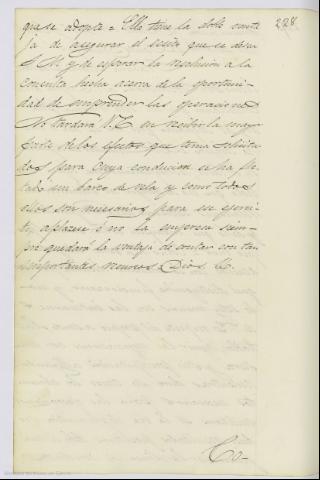 228
que se adopte = Ella tiene la doble venta
ja de asegurar el secreto que se desea
S.M. y de esperar la resolucion á la
consulta hecha acerca de la oportuni-
dad de emprender las operaciones
No tardará V.E. en recibir la mayor
parte de los efectos que tiene solicita
dos para cuya conducion se ha fle
tado un barco de vela y como todos
ellos son necesarios para ese ejerci-
to, aplazese ó no la empresa siem-
pre quedará la ventaja de contar con tan
importantes recursos = Dios &.
Co-